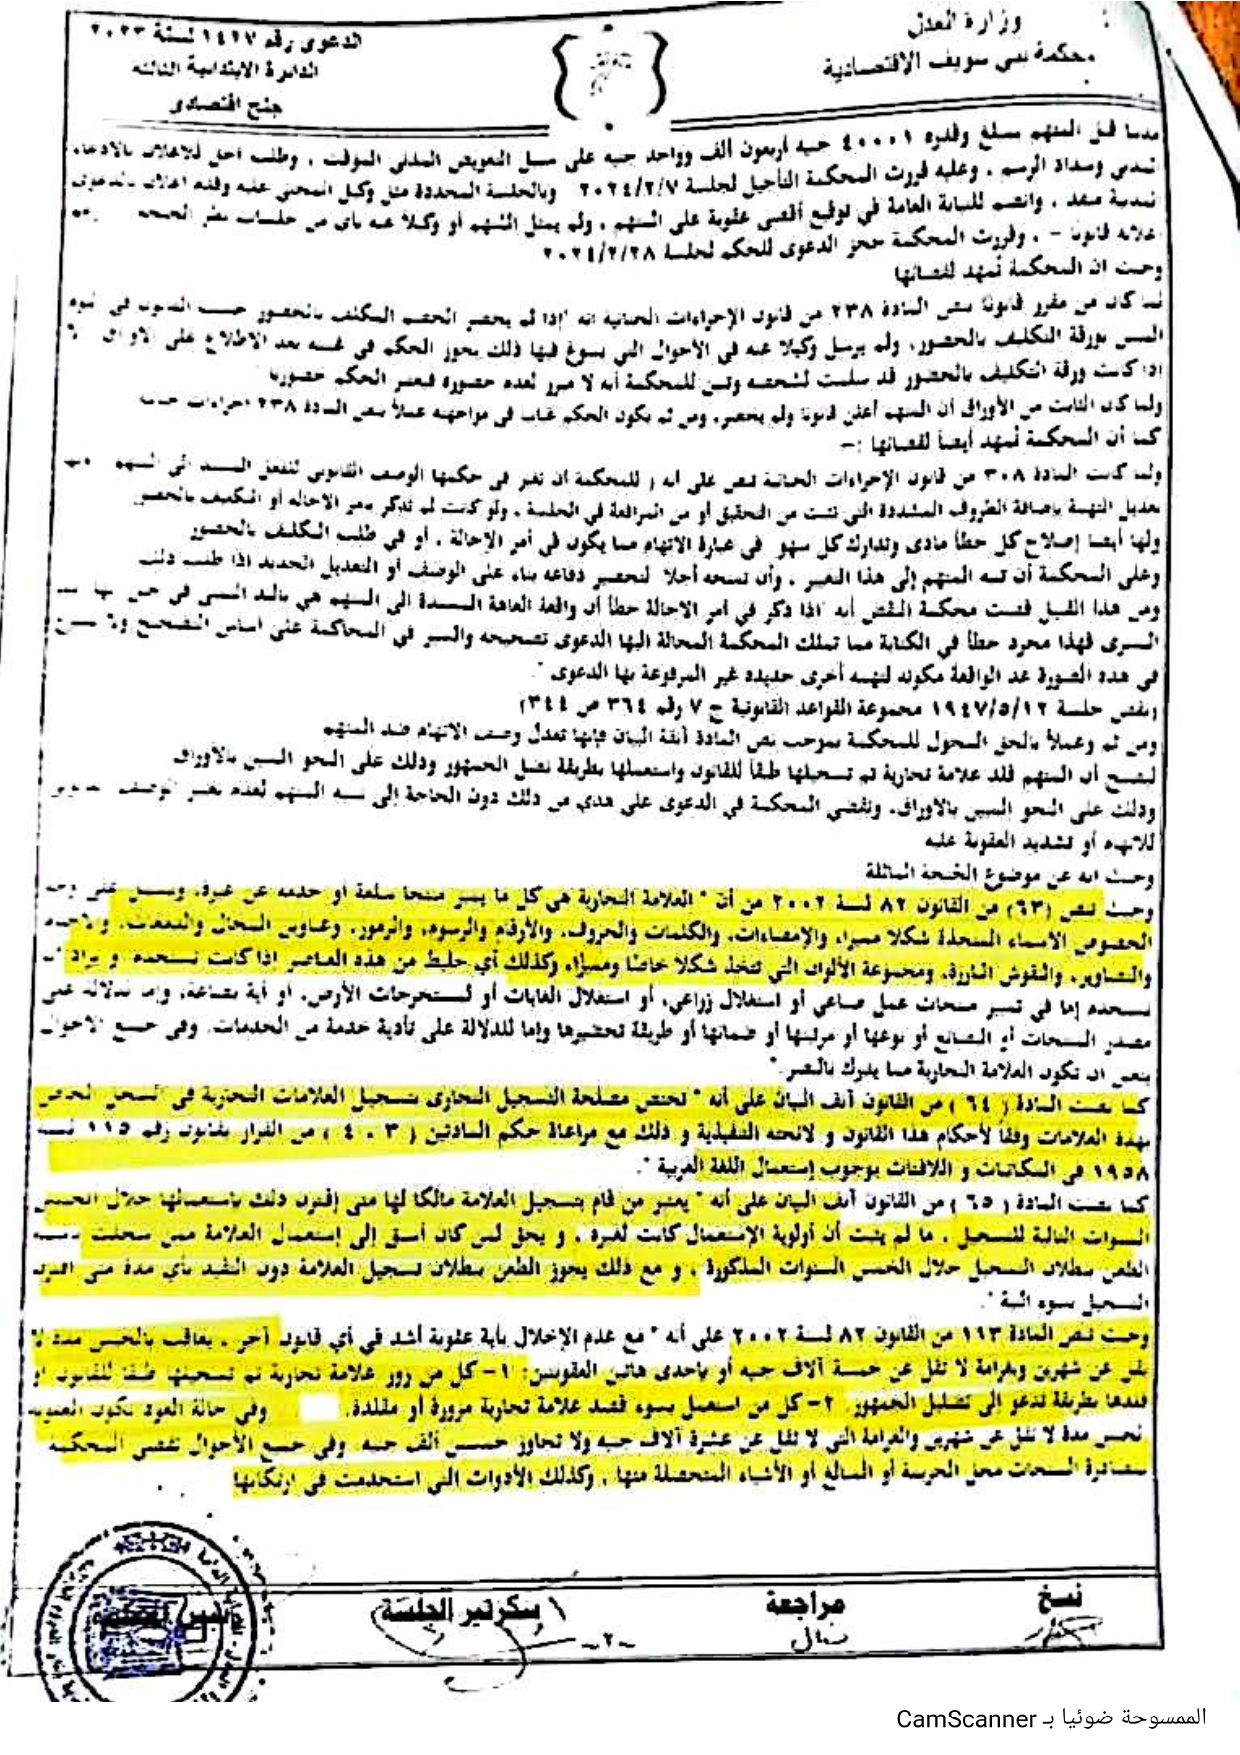 وزارة العدل
محكمة بني سويف الاقتصادية
الدعوى رقم ١٤٢٧ لسنة ٢٠٢٣
الدائرة الابتدائية الثالثة
جنح اقتصادى
مدنيا قبل المتهم بمبلغ وقدره ٤٠٠٠١ جنيه أربعون ألف وواحد جنيه على سبيل التعويض المدني المؤقت ، وطلب اجل للاعلان بالادعاء
المدني وسداد الرسم ، وعليه قررت المحكمة التأجيل لجلسة ٢٠٢٤/٢/٧ وبالجلسة المحددة مثل وكيل المجني عليه وقدم اعلان بالدعوى
المدنية منفذ ، وانضم للنيابة العامة في توقيع أقصى عقوبة على المتهم ، ولم يمثل المتهم أو وكيلاً عنه بأى من جلسات نظر الجنحة
اعلانه قانونا – ، وقررت المحكمة حجز الدعوى للحكم لجلسة ٢٠٢٤/٢/٢٨
وحيث ان المحكمة تمهد لقضائها
لما كان من مقرر قانونًا بنص المادة ٢٣٨ من قانون الإجراءات الجنائية انه "إذا لم يحضر الخصم المكلف بالحضور حسب القانون في اليوم
المبين بورقة التكليف بالحضور، ولم يرسل وكيلا عنه في الأحوال التي يسوغ فيها ذلك يجوز الحكم في غيبته بعد الاطلاع على الاوراق
اذا كانت ورقة التكليف بالحضور قد سلمت لشخصه وتبين للمحكمة أنه لا مبرر لعدم حضوره فيعتبر الحكم حضوريا
ولما كان الثابت من الأوراق أن المتهم أعلن قانونا ولم يحضر، ومن ثم يكون الحكم غيابيا في مواجهته عملاً بنص المادة ٢٣٨ اجراءات جنائية
كما أن المحكمة تمهد أيضاً لقضائها :–
ولما كانت المادة ٣٠٨ من قانون الإجراءات الجنائية تنص على أنه ( للمحكمة ان تغير في حكمها الوصف القانوني للفعل المسند الى المتهم
تعديل التهمة بإضافة الظروف المشددة التي تثبت من التحقيق أو من المرافعة في الجلسة ، ولو كانت لم تذكر بأمر الاحالة أو التكليف بالحضور
ولها أيضا إصلاح كل خطأ مادى وتدارك كل سهو في عبارة الاتهام مما يكون في أمر الإحالة ، أو في طلب التكليف بالحضور
وعلى المحكمة أن تنبه المتهم إلى هذا التغيير ، وأن تمنحه أجلا لتحضير دفاعه بناء على الوصف أو التعديل الجديد اذا طلب ذلك
ومن هذا القبيل قضت محكمة النقض أنه "اذا ذكر في أمر الاحالة خطأ أن واقعة العاهة المسندة الى المتهم هي باليد اليمنى في حين انها
اليسرى فهذا مجرد خطأ في الكتابة مما تملك المحكمة المحالة اليها الدعوى تصحيحه والسير في المحاكمة على اساس التصحيح
في هذه الصورة عد الواقعة مكونه لتهمه أخرى جديده غير المرفوعة بها الدعوى ".
(نقض جلسة ١٩٤٧/٥/١٢ مجموعة القواعد القانونية ج ٧ رقم ٣٦٤ ص ٣٤٤)
ومن ثم وعملاً بالحق المخول للمحكمة بموجب نص المادة آنفة البيان فإنها تعدل وصف الاتهام ضد المتهم
ليصبح أن المتهم قلد علامة تجارية تم تسجيلها طبقاً للقانون واستعملها بطريقة تضلل الجمهور وذلك على النحو المبين بالأوراق
وذلك على النحو المبين بالاوراق، وتقضي المحكمة في الدعوى على هدي من ذلك دون الحاجة إلى تنبيه المتهم لعدم تغيير الوصف
للاتهام أو تشديد العقوبة عليه
وحيث انه عن موضوع الجنحة الماثلة
وحيث تنص (٦٣) من القانون ٨٢ لسنة ٢٠٠٢ من أن " العلامة التجارية هي كل ما يميز منتجا سلعة أو خدمه عن غيره، وتشمل على وجه
الخصوص الأسماء المتخذة شكلا مميزا، والإمضاءات، والكلمات والحروف، والأرقام والرسوم، والرموز، وعناوين المحال والدمغات، والاختام
والتصاوير، والنقوش البارزة، ومجموعة الألوان التي تتخذ شكلا خاصًا ومميزا، وكذلك أي خليط من هذه العناصر اذا كانت تستخدم، و يراد
تستخدم إما في تمييز منتجات عمل صناعي أو استغلال زراعي، أو استغلال الغابات أو لمستخرجات الأرض، أو أية بضاعة، وإما للدلالة على
مصدر المنتجات أو البضائع أو نوعها أو مرتبتها أو ضمانها أو طريقة تحضيرها وإما للدلالة على تأدية خدمة من الخدمات. وفى جميع الاحوال
يتعين ان تكون العلامة التجارية مما يدرك بالبصر."
كما نصت المادة ( ٦٤ ) من القانون آنف البيان على أنه " تختص مصلحة التسجيل التجارى بتسجيل العلامات التجارية في السجل الخاص
بهذه العلامات وفقاً لأحكام هذا القانون و لائحته التنفيذية و ذلك مع مراعاة حكم المادتين ( ٣ ، ٤ ) من القرار بقانون رقم ١١٥ لسنة
١٩٥٨ في المكاتبات و اللافتات بوجوب إستعمال اللغة العربية ".
كما نصت المادة ( ٦٥ ) من القانون آنف البيان على أنه " يعتبر من قام بتسجيل العلامة مالكا لها متى إقترن ذلك بإستعمالها خلال الخمس
السنوات التالية للتسجيل ، ما لم يثبت أن أولوية الإستعمال كانت لغيره ، و يحق لمن كان أسبق إلى إستعمال العلامة ممن سجلت بإسمه
الطعن ببطلان التسجيل خلال الخمس السنوات المذكورة ، و مع ذلك يجوز الطعن ببطلان تسجيل العلامة دون التقيد بأي مدة متى اقترن
التسجيل بسوء النية ".
وحيث تنص المادة ١١٣ من القانون ٨٢ لسنة ٢٠٠٢ على أنه " مع عدم الإخلال بأية عقوبة أشد في أي قانون آخر ، يعاقب بالحبس مدة لا
تقل عن شهرين وبغرامة لا تقل عن خمسة آلاف جنيه أو بإحدى هاتين العقوبتين: ١– كل من زور علامة تجارية تم تسجيلها طبقا للقانون او
قلدها بطريقة تدعو إلى تضليل الجمهور. ٢– كل من استعمل بسوء قصد علامة تجارية مزورة أو مقلدة. وفي حالة العود تكون العقوبة
الحبس مدة لا تقل عن شهرين والغرامة التي لا تقل عن عشرة آلاف جنيه ولا تجاوز خمسين ألف جنيه. وفي جميع الأحوال تقضى المحكمة
بمصادرة المنتجات محل الجريمة أو المبالغ أو الأشياء المتحصلة منها ، وكذلك الأدوات التي استخدمت في ارتكابها
نسخ
مراجعة
سكرتير الجلسة
–٢–
الممسوحة ضوئيا بـ CamScanner